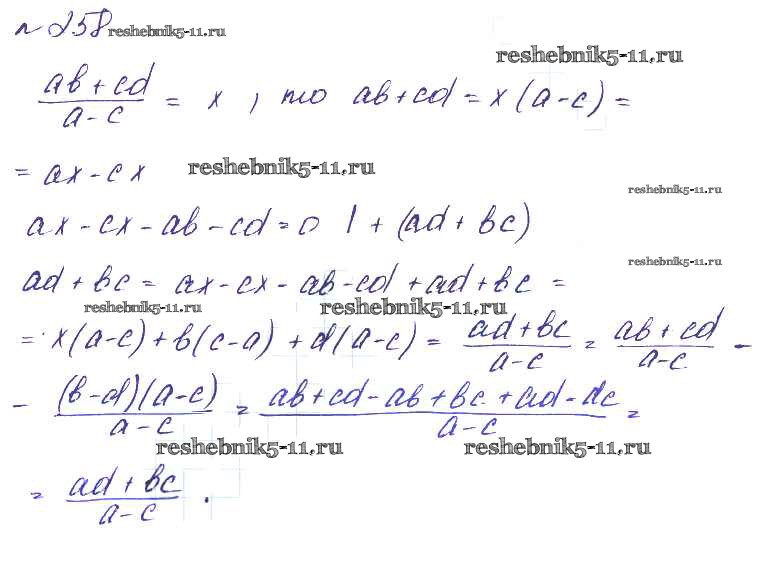 № 258 reshebnik5-11.ru
reshebnik5-11.ru
(ab + cd)/(a - c) = x, то ab + cd = x(a - c) =
= ax - cx reshebnik5-11.ru
reshebnik5-11.ru
ax - cx - ab - cd = 0 | + (ad + bc)
reshebnik5-11.ru
ad + bc = ax - cx - ab - cd + ad + bc =
reshebnik5-11.ru reshebnik5-11.ru
= x(a - c) + b(c - a) + d(a - c) = (ad + bc)/(a - c) = (ab + cd)/(a - c) -
- (b - d)(a - c)/(a - c) = (ab + cd - ab + bc + ad - dc)/(a - c) =
reshebnik5-11.ru reshebnik5-11.ru
= (ad + bc)/(a - c).